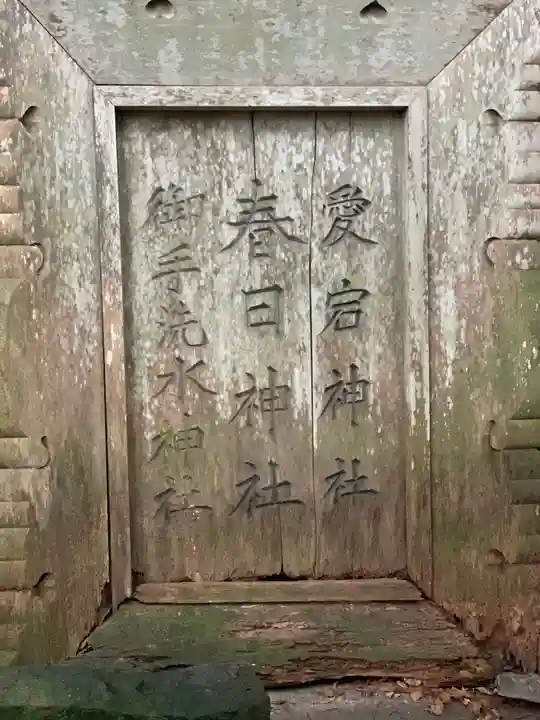 愛宕神社
春日神社
御手洗水神社